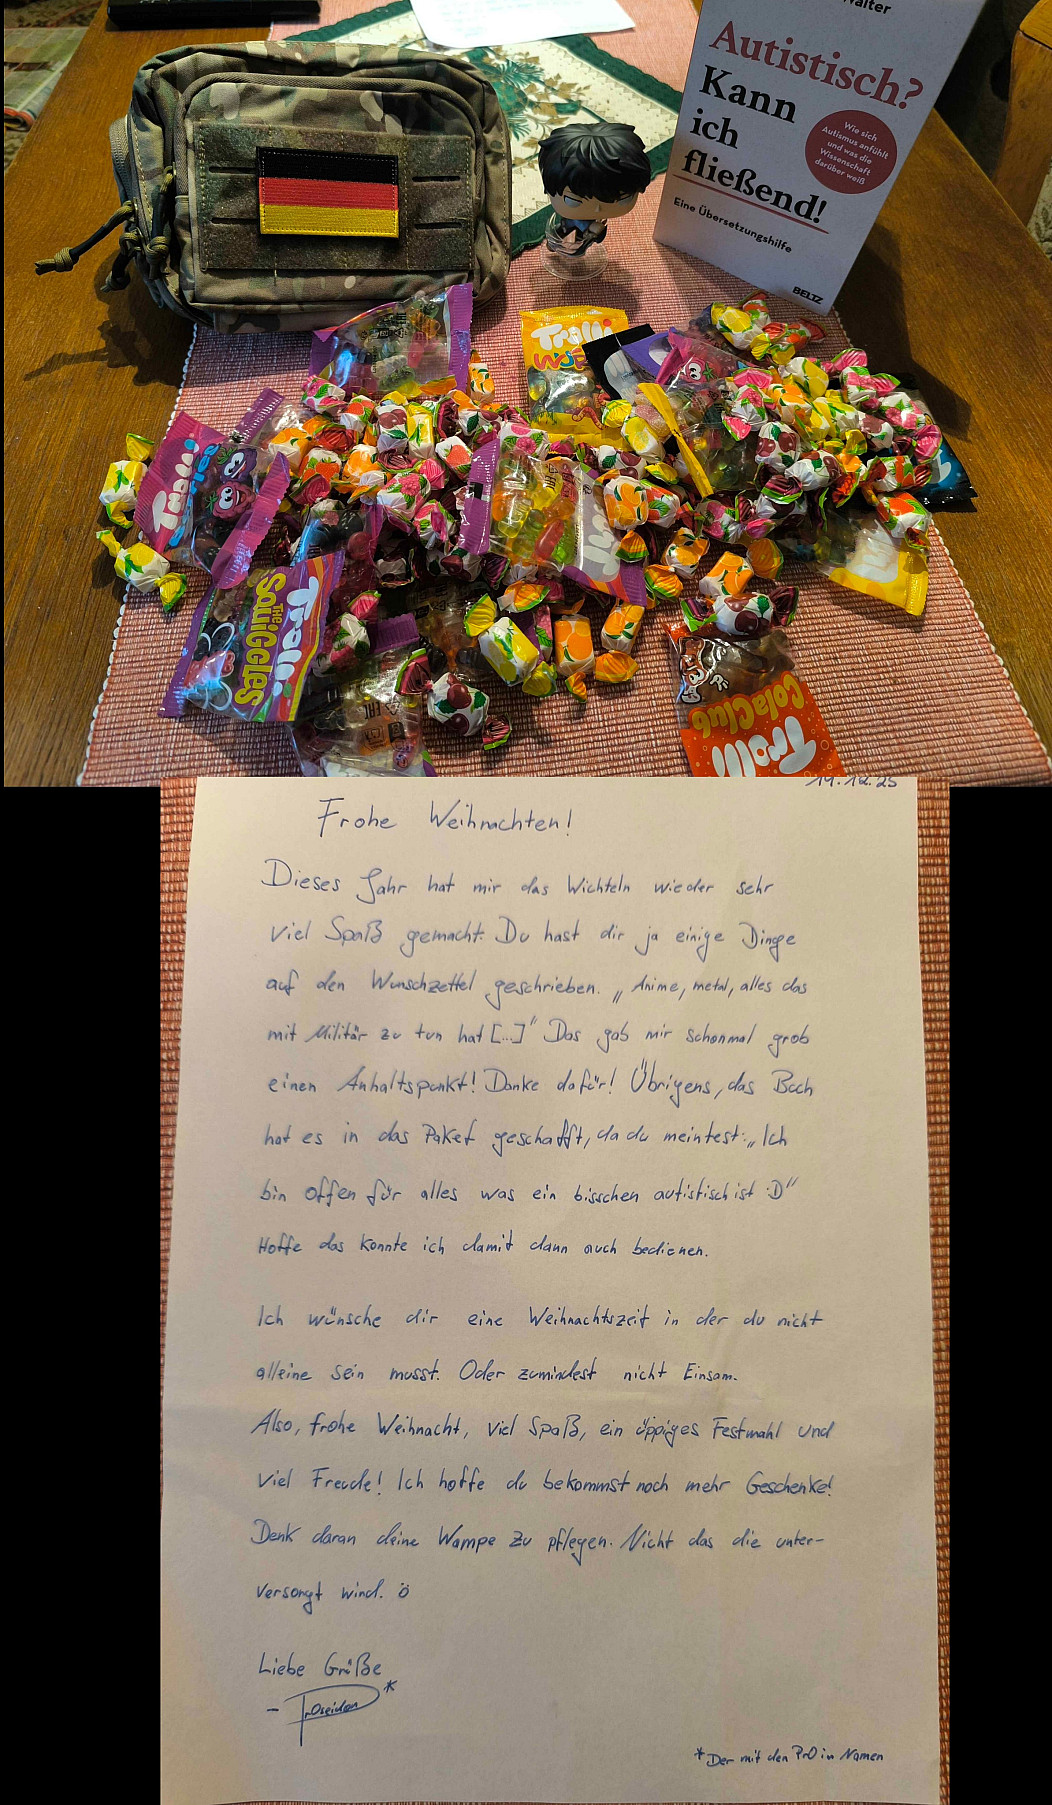 Walter
Autistisch?
Kann
ich
fließend!
Wie sich
Autismus anfühlt
und was die
Wissenschaft
darüber weiß
Eine Übersetzungshilfe
BELTZ
Trolli
Trolli
Trolli
THE
SQUIGGLES
Trolli
ColaClub
19.12.25
Frohe Weihnachten!
Dieses Jahr hat mir das Wichteln wieder sehr
viel Spaß gemacht. Du hast dir ja einige Dinge
auf den Wunschzettel geschrieben. „Anime, metal, alles das
mit Militär zu tun hat [...]" Das gab mir schonmal grob
einen Anhaltspunkt! Danke dafür! Übrigens, das Buch
hat es in das Paket geschafft, da du meintest: „Ich
bin offen für alles was ein bisschen autistisch ist :D"
Hoffe das konnte ich damit dann auch bedienen.
Ich wünsche dir eine Weihnachtszeit in der du nicht
alleine sein musst. Oder zumindest nicht Einsam.
Also, frohe Weihnacht, viel Spaß, ein üppiges Festmahl und
viel Freude! Ich hoffe du bekommst noch mehr Geschenke!
Denk daran deine Wampe zu pflegen. Nicht das die unter-
versorgt wird. ö
Liebe Grüße
- PrOseidon*
*Der mit den PrO in Namen